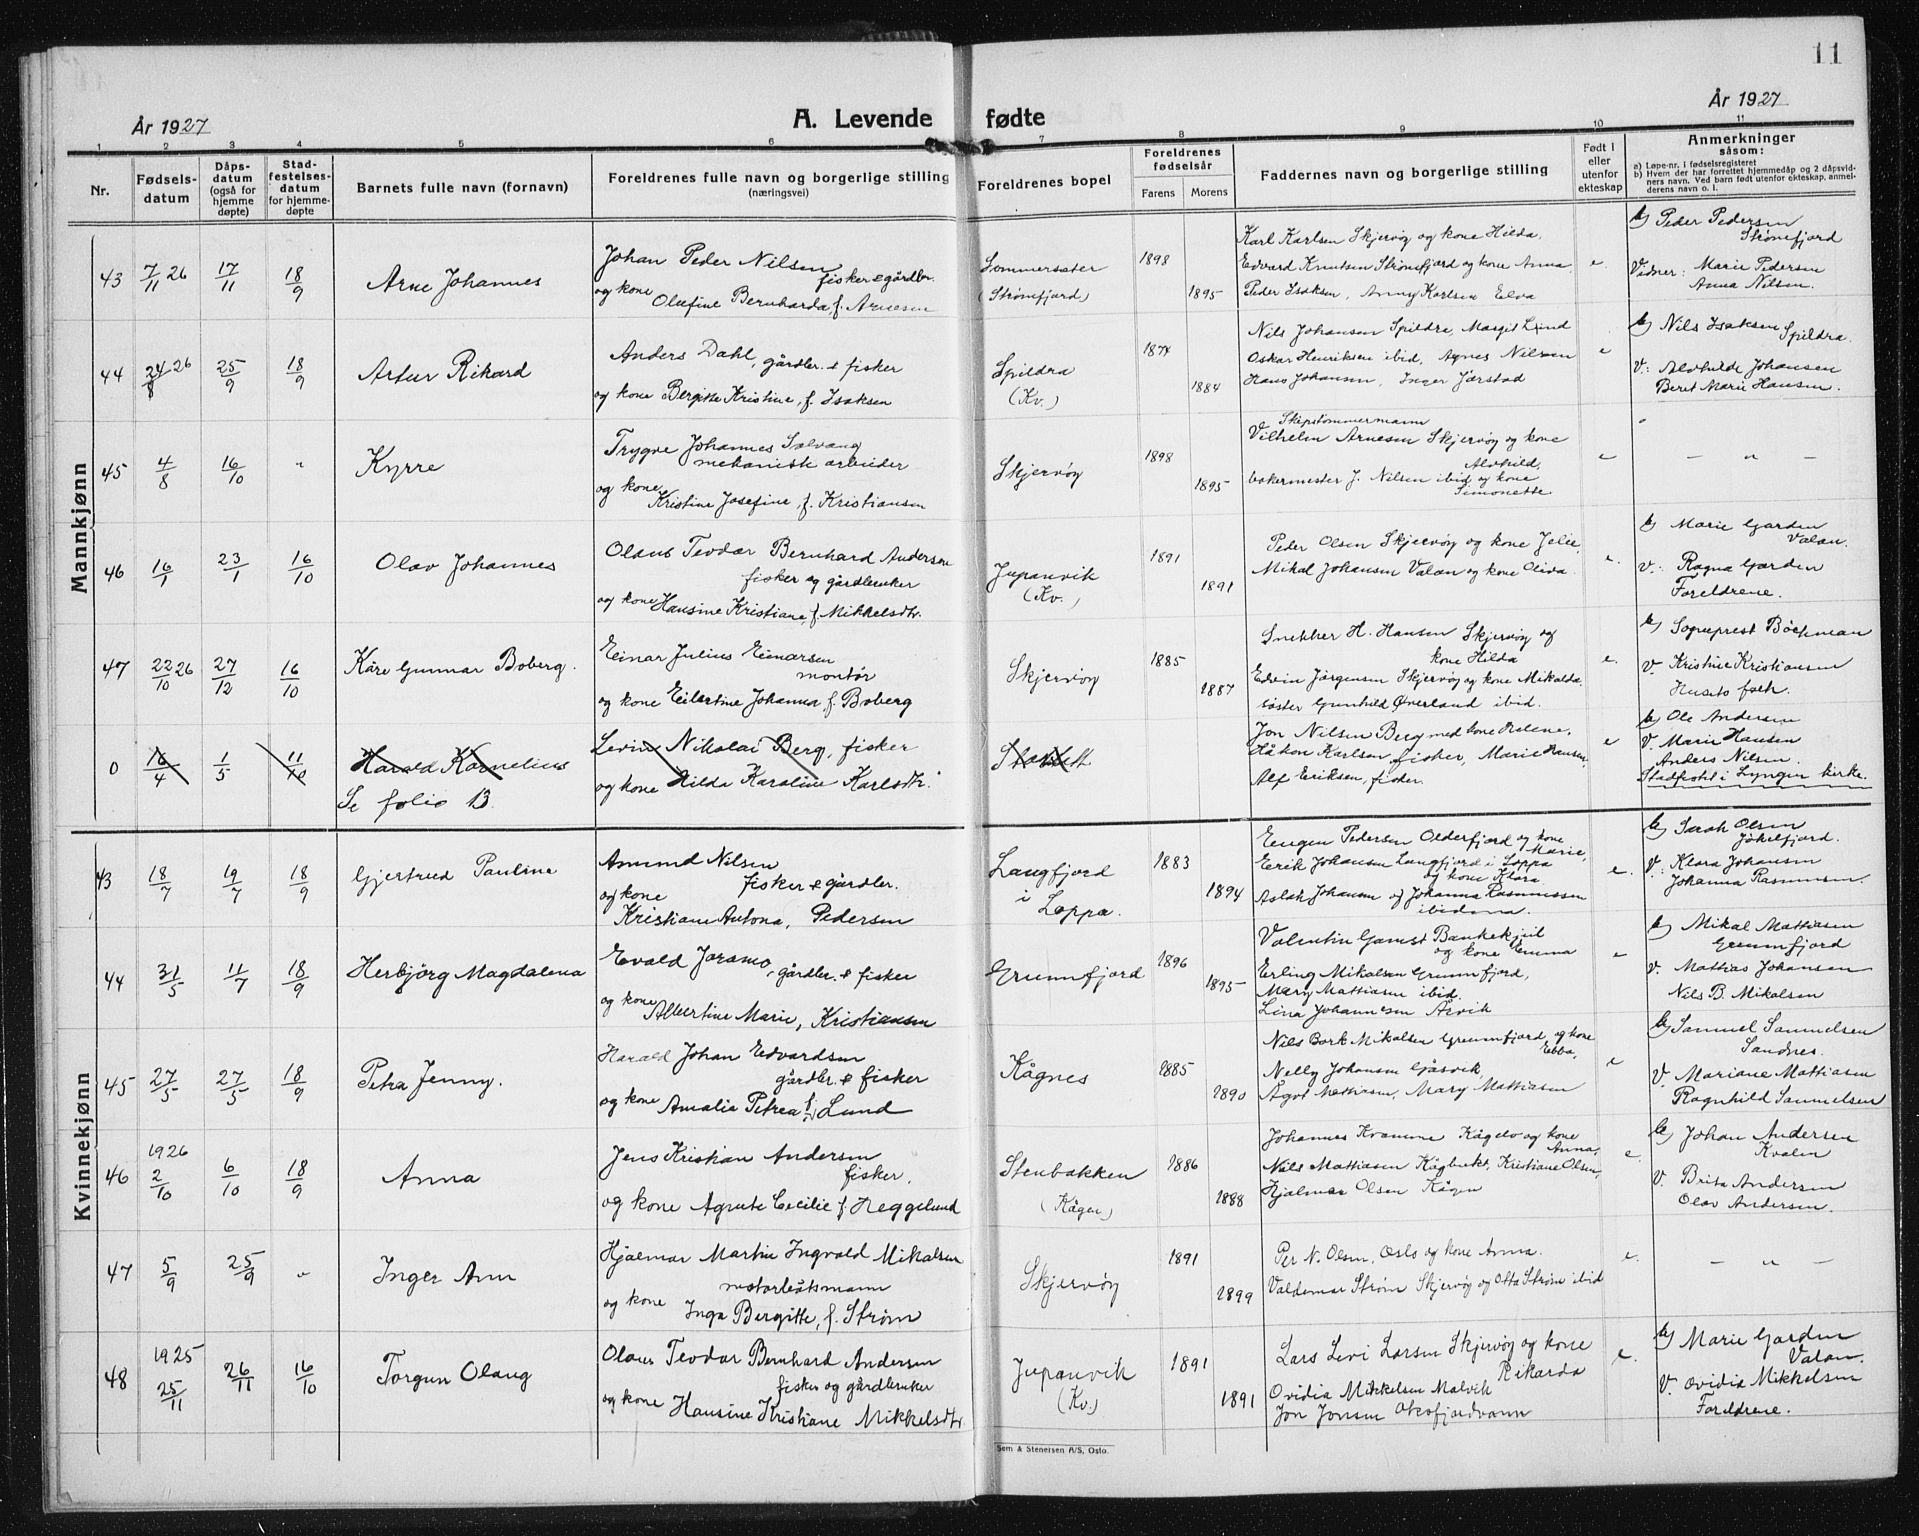 11
År 1927
A. Levende fødte
År 1927
1 2 3 4 5 6 7 8 9 10 11
Nr.
Fødsels-
datum
Dåps-
datum
(også for
hjemme
døpte)
Stad-
festelses-
datum
for hjemme-
døpte
Barnets fulle navn (fornavn)
Foreldrenes fulle navn og borgerlige stilling
(næringsvei)
Foreldrenes bopel
Foreldrenes
fødselsår
Farens Morens
Faddernes navn og borgerlige stilling
Født i
eller
utenfor
ekteskap
Anmerkninger
såsom:
a) Løpe-nr. i fødselsregisteret
b) Hvem der har forrettet hjemmedåp og 2 dåpsvid-
ners navn. Ved barn født utenfor ekteskap, anmel-
derens navn o. l.
Mannkjønn
43 7/11 26 17/11 18/9 Arne Johannes
Johan Peder Nilsen
fisker & gårdbr.
og kone
Olufine Bernharda, f. Arnesen
Sommersæter
(Strømfjord)
1898
1895
Karl Karlsen Skjervøy og kone Hilda,
Edvard Knutsen Strømfjord og kone Anna,
Peder Isaksen, Anny Karlsen Elva
e
b) Peder Pedersen
Strømfjord
Vidner: Marie Pedersen
Anna Nilsen.
44 24/8 26 25/9 18/9 Artur Rikard
Anders Dahl, gårdbr. & fisker
og kone Bergitte Kristine, f. Isaksen
Spildra
(Kv.)
1874
1884
Nils Johansen Spildra, Margit Lund
Oskar Henriksen ibid, Agnes Nilsen
Hans Johansen, Inger Jørstad
e
b) Nils Isaksen Spildra.
V: Alvhilde Johansen
Beret Marie Hansen.
45 4/8 16/10 " Kyrre
Trygve Johannes Solvang
mekanisk arbeider
og kone
Kristine Josefine, f. Kristiansen
Skjervøy
1898
1895
Skipstømmermann
Vilhelm Arnesen Skjervøy og kone
Alvhild,
bakermester J. Nilsen ibid og kone
Simonette
e
— " —
46 16/1 23/1 16/10 Olav Johannes
Olaus Teodor Bernhard Andersen
fisker og gårdbruker
og kone Hansine Kristiane, f. Mikkelsdtr.
Jupanvik
(Kv.)
1891
1891
Peder Olsen Skjervøy og kone Jelie,
Mikal Johansen Valan og kone Oliva.
e.
b) Marie Garden
Valan.
V.: Ragna Garden
Foreldrene.
47 22/10 26 27/12 16/10 Kåre Gunnar Boberg.
Einar Julius Einarsen
montør
og kone Eilertine Johanna, f. Boberg
Skjervøy
1885
1887
Snekker H. Hansen Skjervøy og
kone Hilda
Edvin Jørgensen Skjervøy og kone Mikalda
søster Gunhild Øverland ibid.
e.
b) Sogneprest Bockman
V. Kristine Kristiansen
Husets folk.
0 16/4 1/5 11/10 Harald Kornelius
Se folio 13.
Levin Nikolai Berg, fisker
og kone Hilda Karoline Karlsdtr.
Jon Nilsen Berg med kone Helene,
Håkon Karlsen fisker, Marie Hansen,
Alf Eriksen, fisker.
e
b) Ole Andersen
V. Marie Hansen
Anders Nilsen.
Stadfestet i Lyngen kirke.
Kvinnekjønn
43 18/7 19/7 18/9 Gjertrud Pauline
Amund Nilsen
fisker & gårdbr.
og kone
Kristiane Antona, Pedersen
Langfjord
i Loppa.
1883
1894
Eugen Pedersen Olderfjord og kone
Marie,
Erik Johansen Langfjord i Loppa
og kone Klara
Aslak Johansen og Johanna Rasmussen
ibidema.
e.
b) Sarah Olsen
Jøkelfjord.
V.: Klara Johansen
Johanna Rasmussen.
44 31/5 11/7 18/9 Herbjörg Magdalena
Evald Joramo, gårdbr. & fisker
og kone
Albertine Marie, Kristiansen
Grunnfjord
1896
1895
Valentin Gamst Bankekjul
og kone Emma
Erling Mikalsen Grunnfjord,
Mary Mattiasen ibid.
Lina Johannesen Årvik
e
b) Mikal Mattiasen
Grunnfjord
V. Mattias Johansen
Nils B. Mikalsen
45 27/5 27/5 18/9 Petra Jenny.
Harald Johan Edvardsen
gårdbr. & fisker
og kone Amalia Petrea f. Lund
Kågnes
1885
1890
Nils Bork Mikalsen Grunnfjord, og kone
Ebba,
Nelly Johansen Gåsvik,
Ågot Mattiasen, Mary Mattiasen
e
b) Samuel Samuelsen
Sandnes.
V. Mariane Mattiasen
Ragnhild Samuelsen
46 1926 2/10 6/10 18/9 Anna
Jens Kristian Andersen
fisker,
og kone Agnete Cecilie f. Heggelund
Stenbakken
(Kågen)
1886
1888
Johannes Kvamme Kågelv og kone
Anna,
Nils Mattiasen Kågbukt, Kristiane Olsen,
Hjalmar Olsen Kågen
e.
b) Johan Andersen
Kvalen
V. Brita Andersen
Olav Andersen.
47 5/9 25/9 " Inger Ann
Hjalmar Martin Ingvald Mikalsen
motorbåtsmann
og kone
Inga Bergitte, f. Strøm
Skjervøy
1891
1899
Per N. Olsen, Oslo og kone Anna.
Valdemar Strøm Skjervøy og Otta Strøm ibid
e.
— " —
48 1925 25/11 26/11 16/10 Torgun Olaug
Olaus Teodor Bernhard Andersen
fisker og gårdbruker
og kone Hansine Kristiane Mikkelsdtr.
Jupanvik
(Kv.)
1891
1891
Lars Levi Larsen Skjervøy og kone
Rikarda
Ovidia Mikkelsen Malvik
Jon Jonsen Oksfjordvann
e.
b) Marie Garden
Valan.
V. Ovidia Mikkelsen
Foreldrene.
Sem & Stenersen A/S, Oslo.